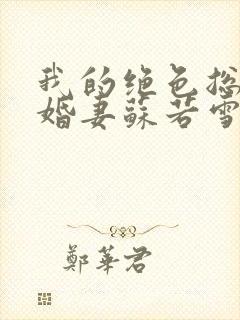 我的绝色总
婚妻苏若雪
鄭華君